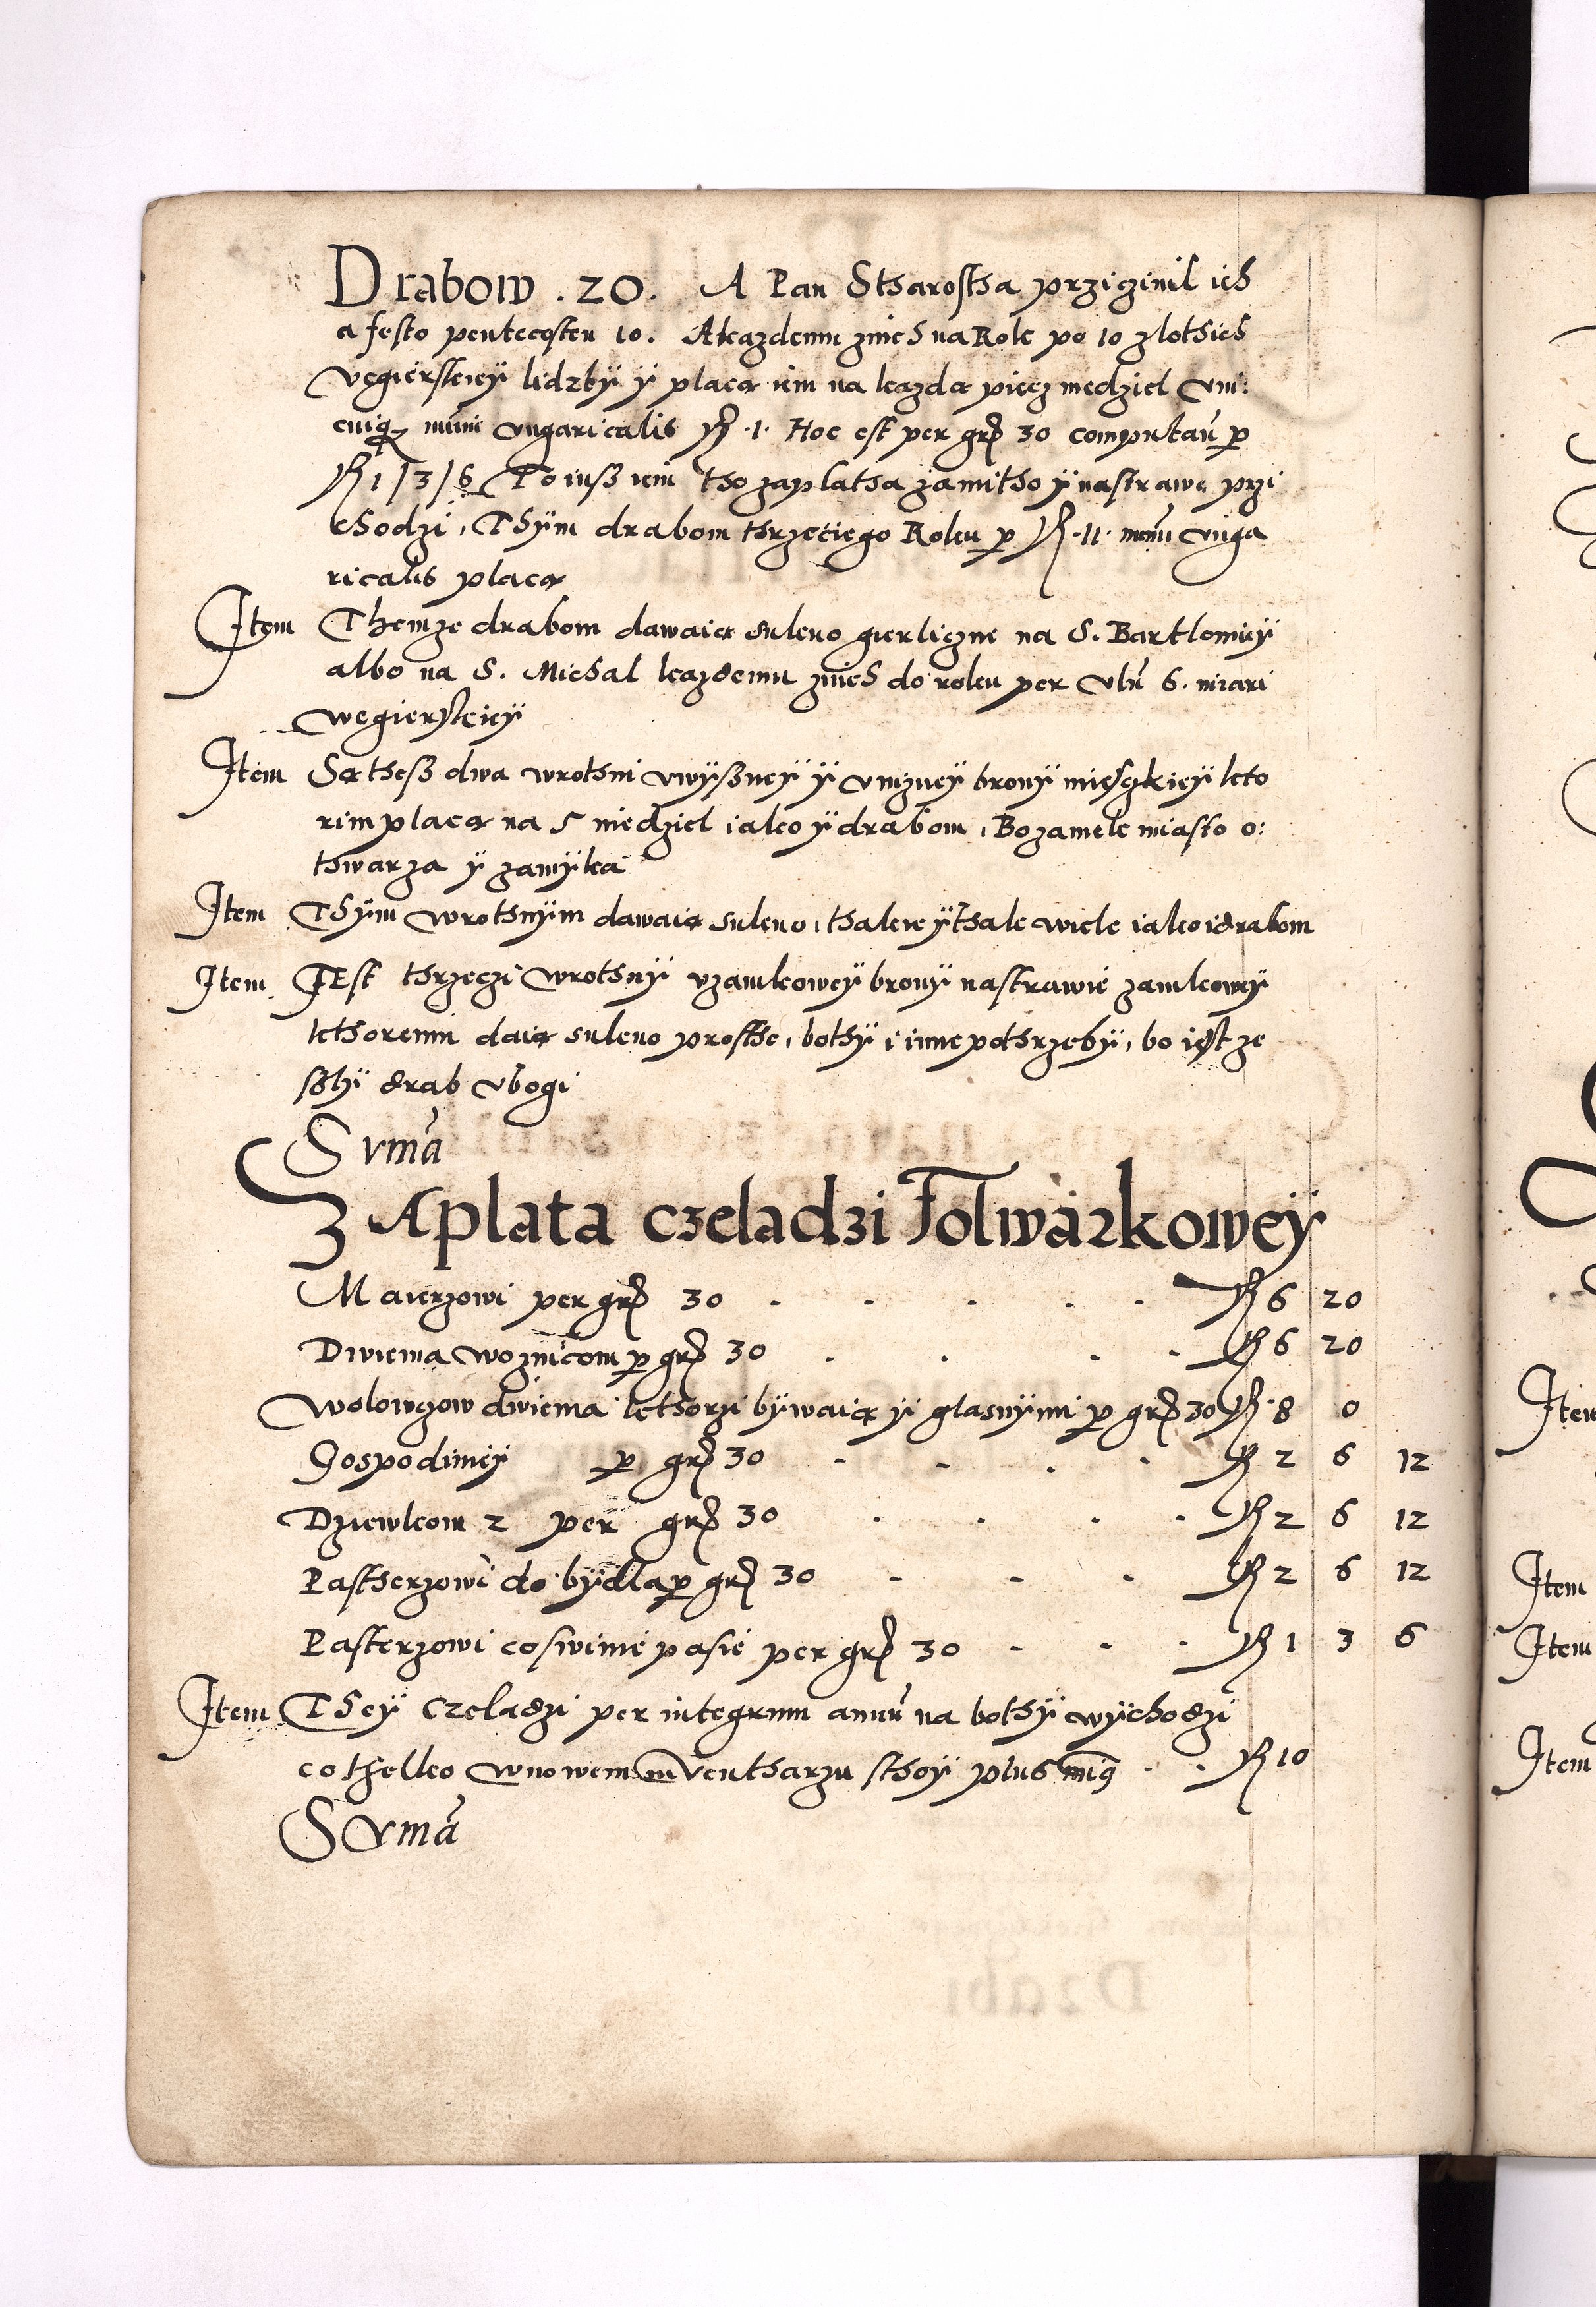 Drabow . 20 . A Pan Stharostha prziczinil ich
a festo pentecosten 10. A kazdemu z nich na Rok po 10 zlothich
Vęgierskiey lidzby y placą im na kazdą pięcz niedziel Vni:
cuiq3 numi Vngaricalis fl .1. Hoc est per grs 30 computañ p
fl 1 / 3 / 6 To iusz im tho zaplatha za mitho y na strawę przi
chodzi, Thym drabom thrzeciego Roku p fl .11. numu Vnga
ricalis placą
Item Themze drabom dawaią sukno gierliczne na S. Bartlomiey
albo na S. Michal kazdemu z nich do roku per Vln 6. miari
wegierskiey
Item Są thesz dwa wrothni v wyszney y v nizney brony mieszkiey kto
rim placą na 5 niedziel iako y drabom, Bo zamek miasto o:
thwarza y zamyka
Item Thym wrothnym dawaią sukno, thakie y thak wiele iako i drabom
Item JEst thrzeczi wrothny v zamkowey brony na strawie zamkowey
kthoremu daią sukno prosthe, bothy i inne pothrzeby, bo iest ze
szly drab vbogi
Suma
ZAplata czeladzi Folwarkowey
Maierzowi per grs 30 . . . . . fl 6 20
Dwiema woznicom p grs 30 . . . . fl 6 20
Wolowczow dwiema kthorzi bywaią y glasnymi p grs 30 fl 8 0
Gospodiniey p grs 30 . . . . fl 2 6 12
Dziewkom 2 per grs 30 . . . . fl 2 6 12
Pastherzowi do bydla p grs 30 . . . fl 2 6 12
Pasterzowi co swinie pasie per grs 30 . . . fl 1 3 6
Item They czeladzi per integrum annu na bothy wychodzi
co thelko w nowem inventharzu sthoy plus minq . . fl 10
Suma